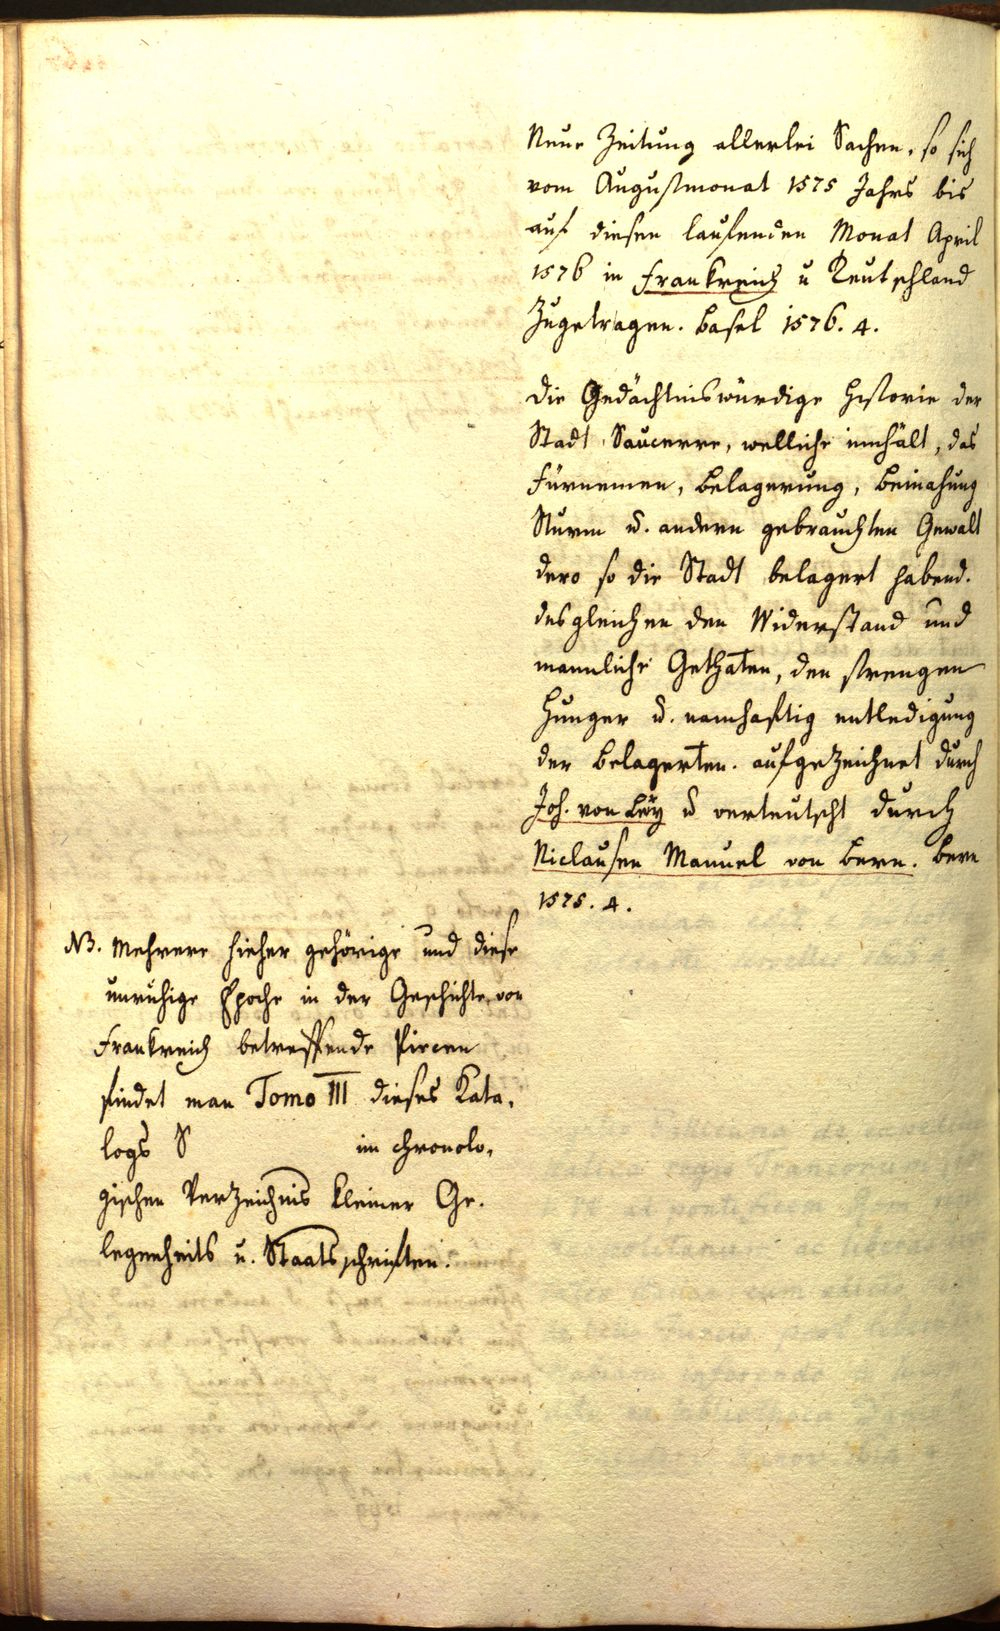 Neue Zeitung allerlei Sachen, so sich
vom Augustmonat 1575 Jahrs bis
auf diesen laufenden Monat April
1576 in Frankreich u Teutschland
Zugetragen. Basel 1576. 4.
die Gedächtniswürdige Historie der
Stadt Saucerre, welliche innhält, das
Fürnemen, Belagerung, Beinahung
Sturm u. andern gebrauchten Gewalt
dero so die Stadt belagert habend.
desgleichen den Widerstand und
mannliche Gethaten, den strengen
Hunger u. namhaftig entledigung
der Belagerten. aufgezeichnet durch
Joh. von Lery u verteutscht durch
Niclausen Manuel von Bern. Bern
1575. 4.
NB. Mehrere hieher gehörige und diese
unruhige Epoche in der Geschichte von
Frankreich betreffende Piecen
findet man Tomo III dieses Kata,
logs S im chronolo,
gischen Verzeichnis kleiner Ge.
legenheits u. Staatsschriften.